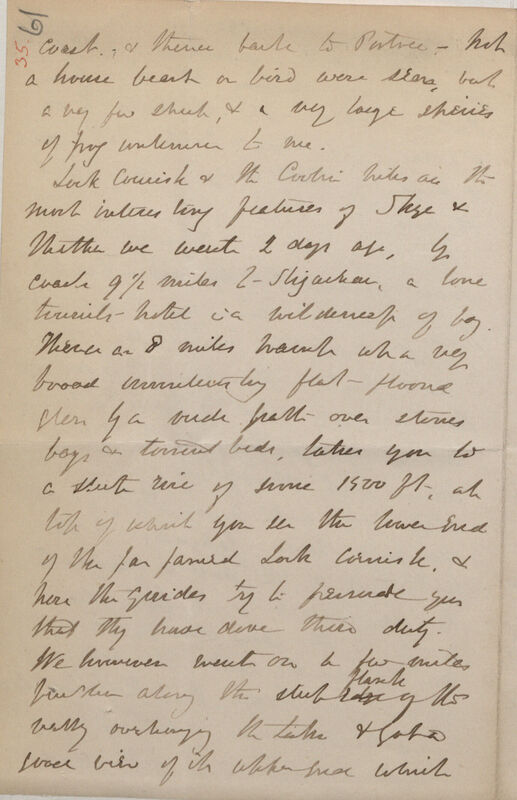 35.
61
coast., & thence back to Portree - Not
a house beast or bird were seen, but
a very few sheep, & a very large species
of frog unknown to me.
Loch Cornisk & the Coolin hills are the
most interesting features of Skye &
thither we went 2 days ago, by
coach 9½ miles to Sligachan, a lone
tourists-hotel in a wilderness of bog.
Thence an 8 miles tramp up a very
broad uninteresting flat-floored
glen by a rude path over stones
bogs & torrent beds, takes you to
a steep rise of some 1500 ft, at
top of which you see the lower end
of the far famed Loch Cornisk, &
here the Guides try to persuade you
that they have done their duty.
We however went on a few miles
further along the steep flank of the
valley overhanging the Lake & got a
good view of its upper end which